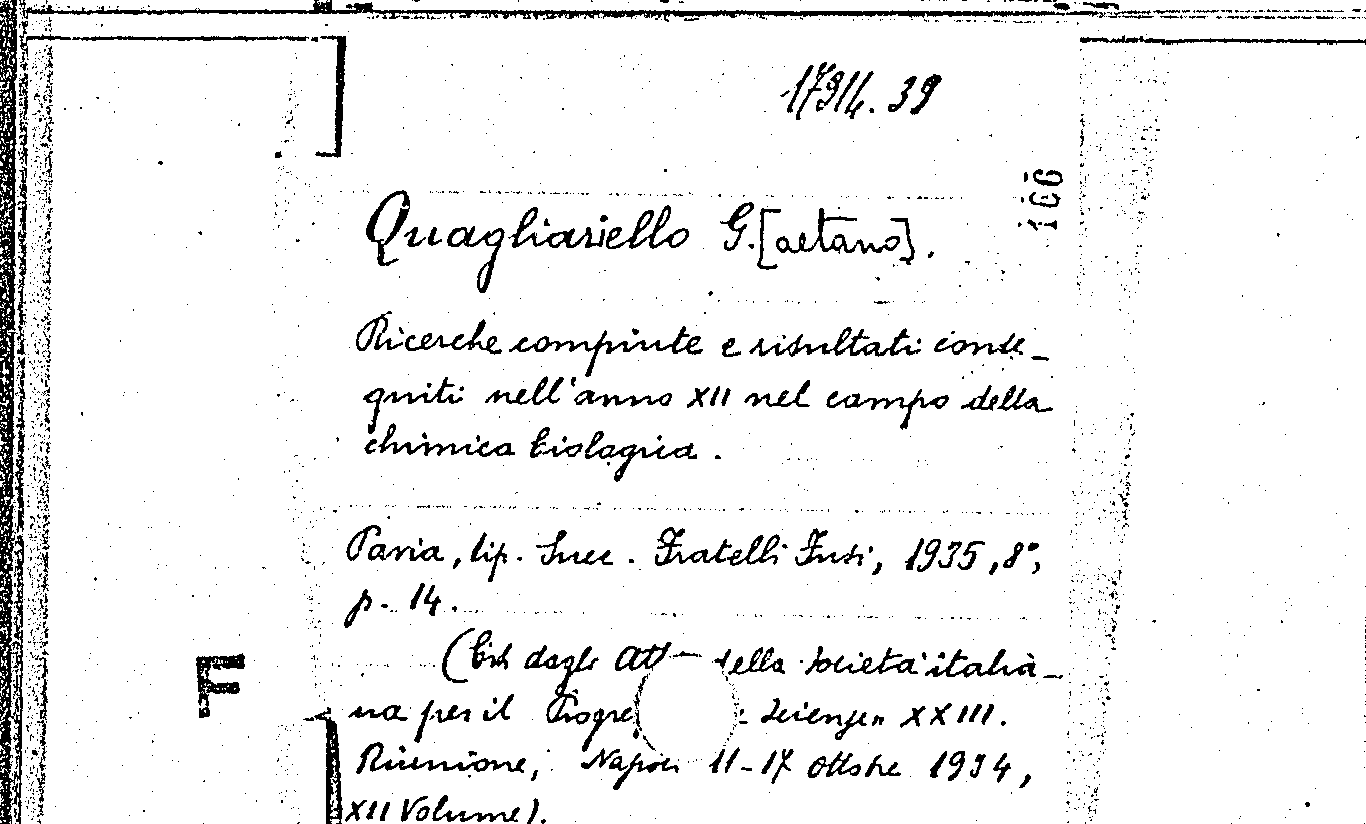 17914.39
166
Quagliariello G.[aetano].
Ricerche compiute e risultati conse_
guiti nell'anno XII nel campo della
chimica biologica.
Pavia, tip. Succ. Fratelli Fusi, 1935, 8°,
p. 14.
(Est dagli Att della Società italia_
F
na per il Progre Scienze" XXIII.
Riunione, Napoli 11-17 Ottobre 1934,
XII Volume).